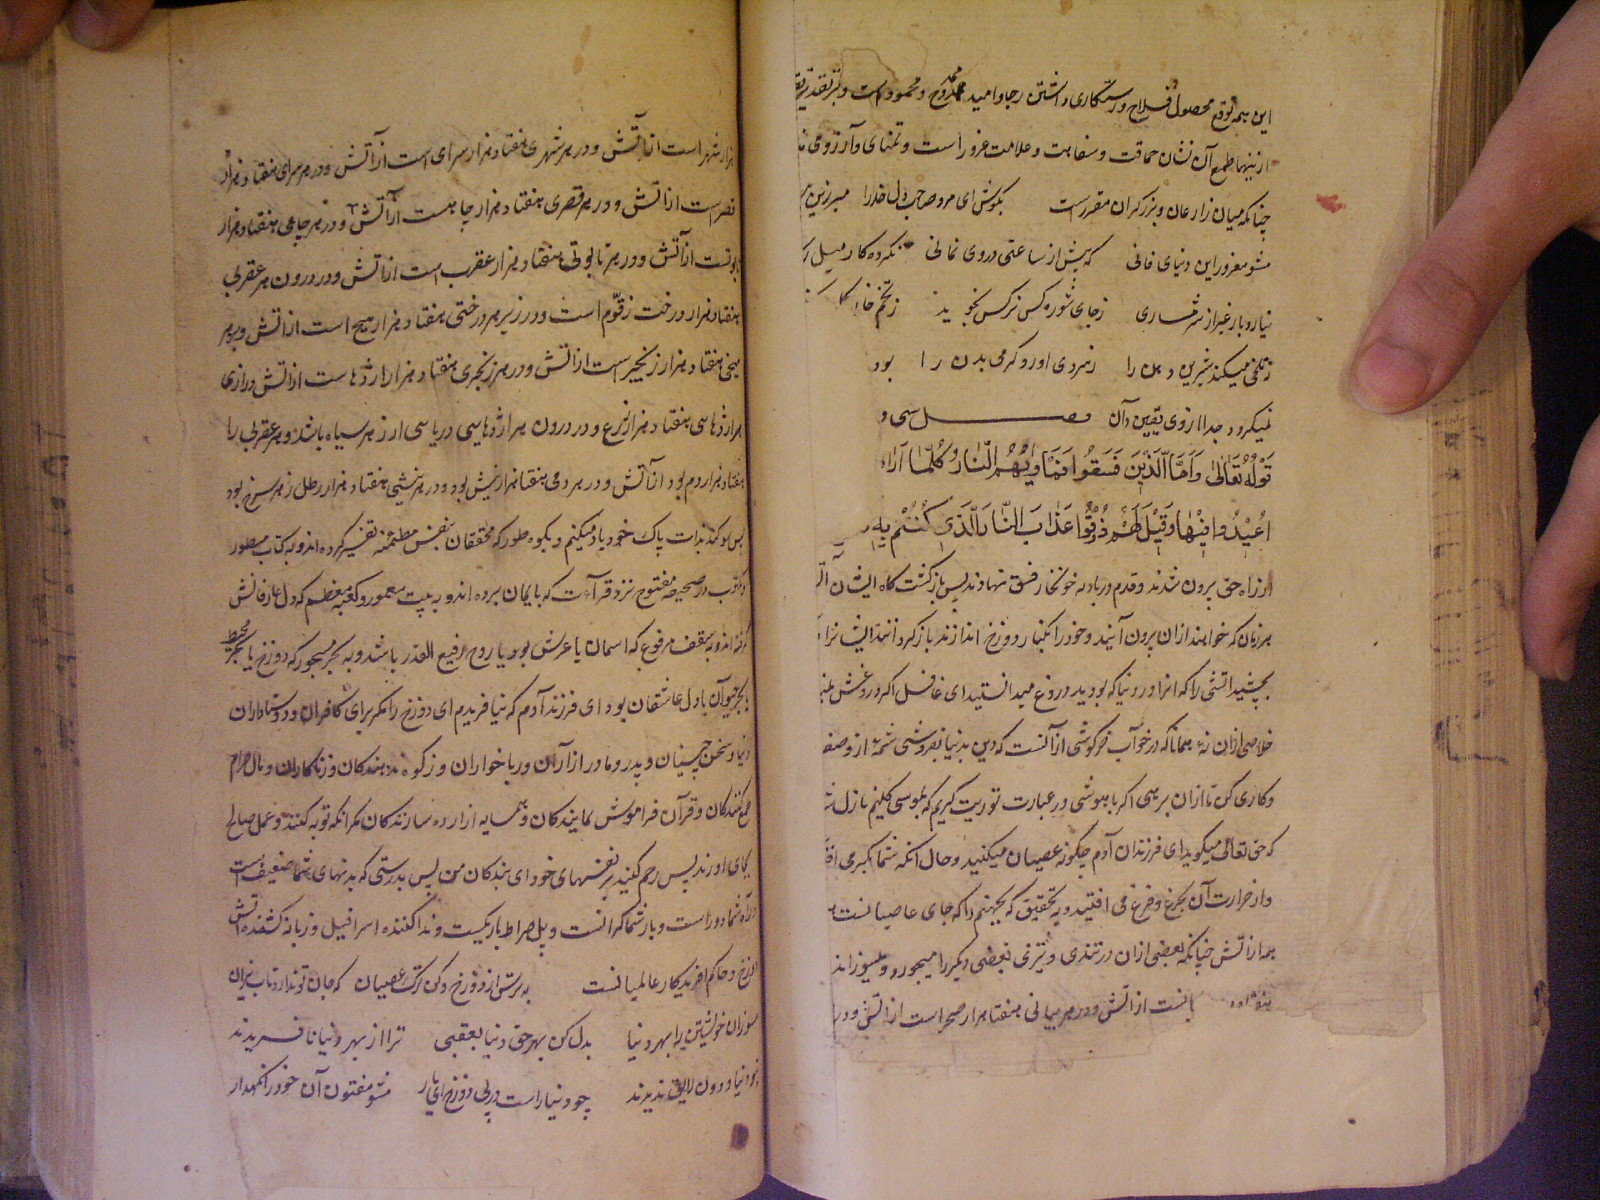 این همه توقع محصول فلاح و رستکاری داشتن رجا و امید ممدوح و محمود است و بتر تقدیر
از ینها طمع آن نشان حماقت و سفاهت و علامت غرور است و تمنای و آرزو می
چنانکه میان زارعان و بزرکران مقررست بکوش ای مرد صاحب دل خدا را
مشو مغرور این دنیای فانی که بیش از ساعتی در وی نمانی نکرده کار میل
نیارد بار غیر از شرمساری زجای شوره کس نرکس نجوید ز تخم خار
ز تلخی میکند شیرین دهن را ز سردی اورد کرمی بدن را بود
نمیکردد جدا از روی یقین دان فصل سی و
قوله تعالی واما الذین فسقوا فماویهم النار کلما اراد
اعیدوا فیها وقیل لهم ذوقوا عذاب النار الذی کنتم به
از راه حق برون شدند و قدم در بادیه خونخار فسق نهادند پس بازکشت کاه ایشان
هر زمان که خواهند ازان برون آیند و خود را بکنار دوزخ اندازند باز کردانند ایشانرا
بچشید اتشی را که انرا در دنیا که بودید دروغ میدانستید ای غافل اکر
خلاصی ازان نه همانا که در خواب خرکوشی از آنست که دین بدنیا بفروشی شمه از وصف
و کاری کن تا ازان برهی اکر باهوشی در عبارت توریت کریم که بموسی کلیم نازل
که حق تعالی میکوید ای فرزندان آدم چکونه عصیان میکنید و حال انکه شما
و از حرارت آن بجزع و فزع می افتید و به تحقیق که بجهنم را که جای عاصیانست
همه از اتش چنانکه بعضی ازان در تندی و تیزی بعضی دیکر را میخورد و میسوزاند
هفتاد از اتش و در هر بیابانی هفتاد هزار صحراست از اتش و در
هزار شهر است از آتش و در هر شهری هفتاد هزار سرای است از آتش و در هر سرای هفتاد هزار
قصر است از اتش و در هر قصری هفتاد هزار جا هست از آتش و در هر جاهی هفتاد هزار
تابوتست از آتش و در هر تابوتی هفتاد هزار عقرب است از اتش و در درون هر عقربی
هفتاد هزار درخت زقّوم است و در زیر هر درختی هفتاد هزار میخ است از اتش و بر هر
میخی هفتاد هزار زنجیر است از اتش و در هر زنجیری هفتاد هزار اژدهاست از اتش درازی
هر اژدهایی هفتاد هزار زرع و در درون هر اژدهایی دریایی از زهر سیاه باشد و هر عقربی را
هفتاد هزار دم بود از آتش و در هر دمی هفتاد هزار نیش بود و در هر نیشی هفتاد هزار رطل زهر سرخ بود
پس سوکند بذات پاک خود یاد میکنم و بکوه طور که محققان بنفس مطمئنه تفسیر کرده اند و به کتاب مسطور
مکتوب در صحیفه مفتوح نزد که بایمان برده اند و به بیت معمور و کعبه معظم که دل عارفانش
کفته اند و به سقف مرفوع که اسمان یا عرش بود یا روح رفیع القدر باشد و به بحر مسجور که دوزخ یا بحر محیط
یا بحر حیوان یا دل عاشقان بود ای فرزند آدم که نیافریدم ای دوزخ را مکر برای کافران و دوستداران
دنیا و سخن چینان و پدر و مادر آزاران و ربا خواران و زکوه ندهندکان و زناکاران و مال حرام
جمع کنندکان و قرآن فراموش نمایندکان و همسایه ازارده سازندکان مکر انکه توبه کنند و عمل صالح
بجای اورند پس رحم کنید بر نفسهای خود ای بندکان من پس بدرستی که بدنهای شما ضعیف است
و راه شما دور است و بار شما کرانست و پل صراط باریکست و ندا کننده اسرافیل و زبانه کشنده اتش
دوزخ و حاکم افریدکار عالمیانست به ترس از دوزخ و کن ترک عصیان که جان تو ندارد تاب نیران
مسوزان خویشتن را بهر دنیا بدل کن بهر حق دنیا بعقبی ترا از بهر دنیا نافریدند
دنیا و دون لایق ندیدند چو دنیا راست در پی دوزخ ای یار مشو مفتون آن خود را نکهدار